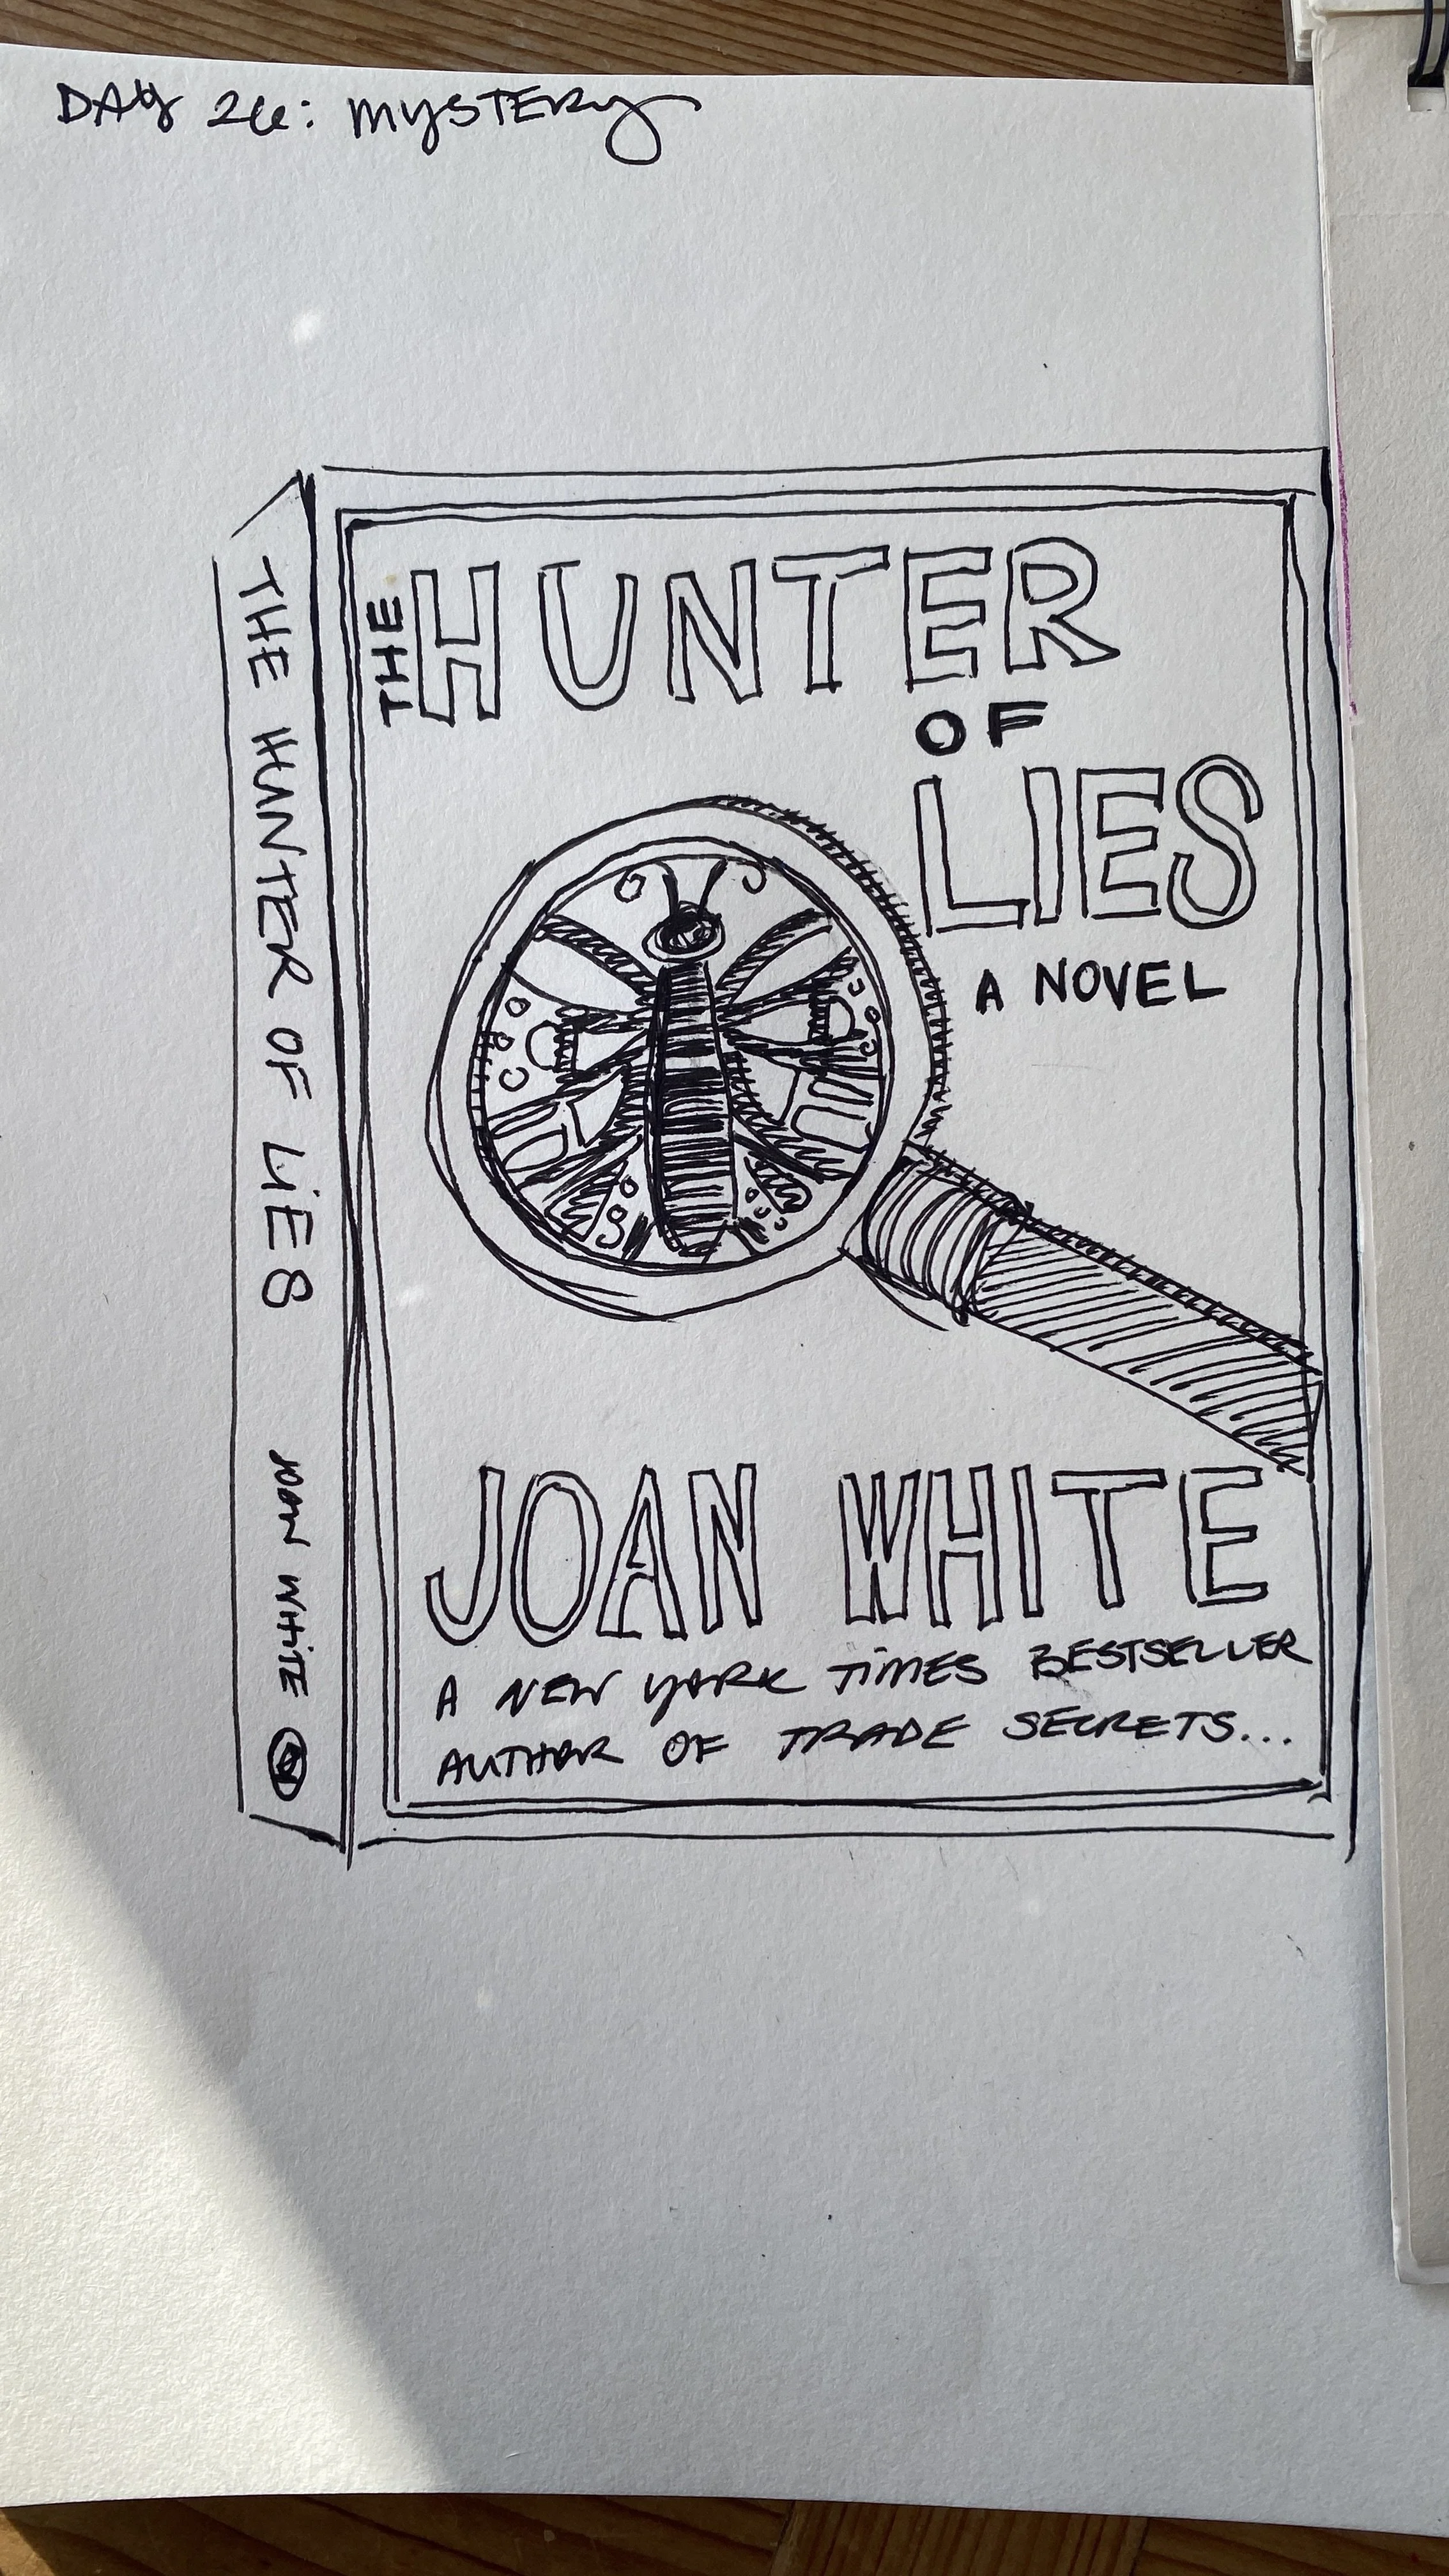 DAY 26: MYSTERY
THE HUNTER
OF
LIES
A NOVEL
JOAN WHITE
A NEW YORK TIMES BESTSELLER
AUTHOR OF TRADE SECRETS...
THE HUNTER OF LIES JOAN WHITE